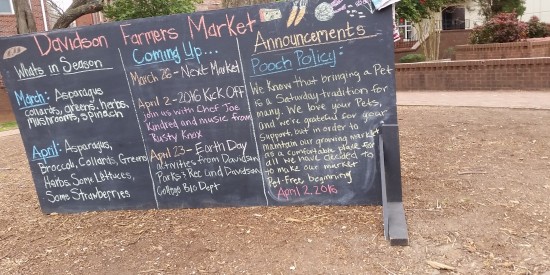 Davidson Farmers Market
Whats in Season
March: Asparagus
collards, greens, herbs,
mushrooms, spinach
April: Asparagus,
Broccoli, Collards, Greens
Herbs, Some Lettuces,
Some Strawberries
Coming Up...
March 26 - Next Market
April 2 - 2016 Kick Off
join us with Chef Joe
Kindred and music from
Rusty Knox
April 23 - Earth Day
activities from Davidson
Parks & Rec and Davidson
College Bio Dept
Announcements
Pooch Policy:
We Know that bringing a Pet
is a Saturday tradition for
many. We love your Pets,
and we're grateful for your
support but in order to
maintain our growing market
as a comfortable place for
all we have decided to
to make our market
Pet-Free beginning
April 2, 2016